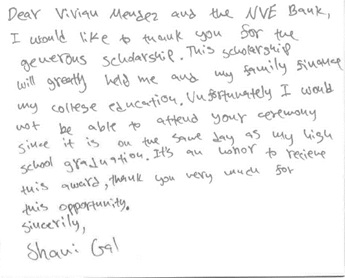 Dear Vivian Mendez and the NVE Bank,
I would like to thank you for the
generous scholarship. This scholarship
will greatly held me and my family finance
my college education. Unfortunately I would
not be able to attend your ceremony
since it is on the same day as my high
school graduation. It's an honor to recieve
this award, thank you very much for
this opportunity.
sincerily,
Shani Gal